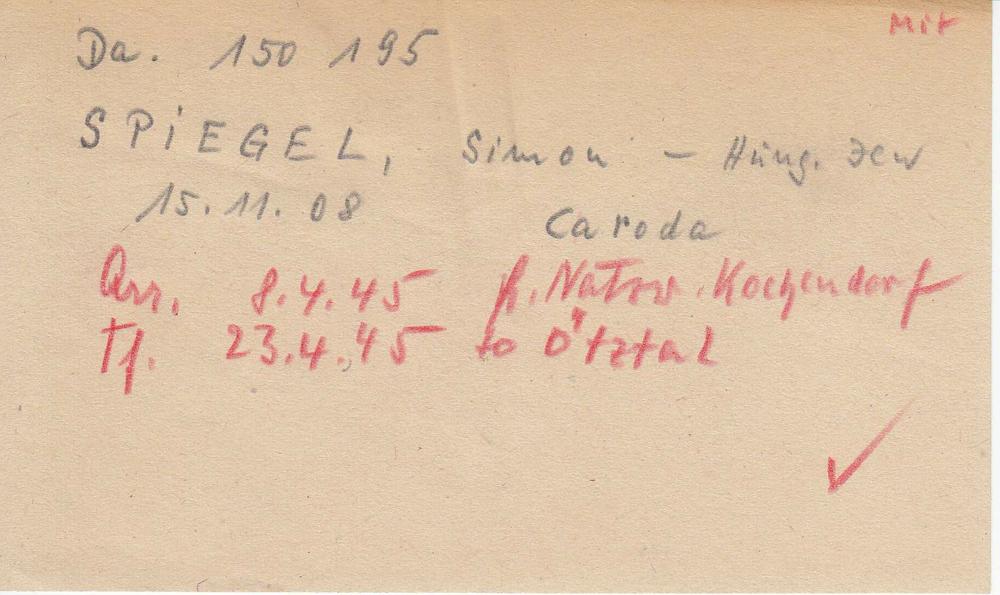 Mit
Da. 150 195
SPIEGEL, Simon - Hung. Jew
15.11.08 Caroda
Arr. 8.4.45 f. Natzw. Kochendorf
Tf. 23.4.45 to Ötztal